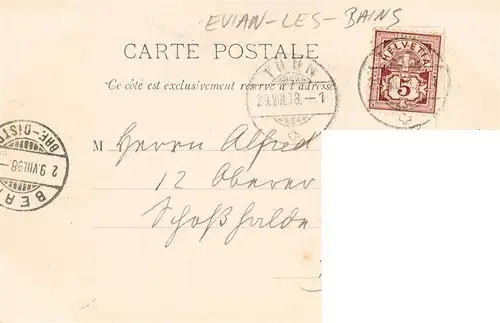 EVIAN-LES-BAINS
CARTE POSTALE
Ce côté est exclusivement réservé à l'adresse
THUN
29.VIII.98.-1
HELVETIA
5
M Herrn Alfred
12 Oberer
Schoßhalde
BERN
29.VIII.98.